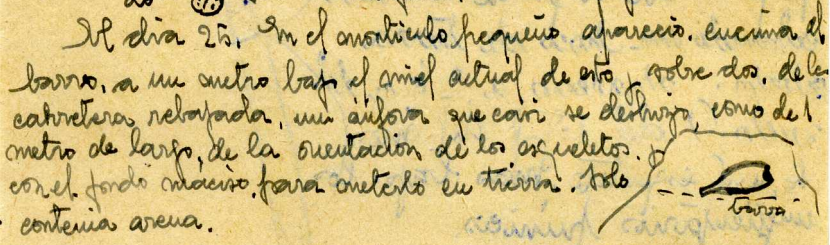 El dia 25. En el monticulo pequeño aparecio, encima el
barro, a un metro bajo el nivel actual de esto y sobre dos, de la
carretera rebajada, un ánfora que casi se deshizo, como de 1
metro de largo, de la orientacion de los esqueletos. y
con el fondo máciso, para meterlo en tierra. Solo
contenia arena.
barro